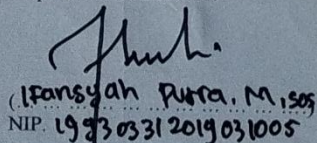 (Ifansyah Putra, M.Sos
NIP. 199303312019031005